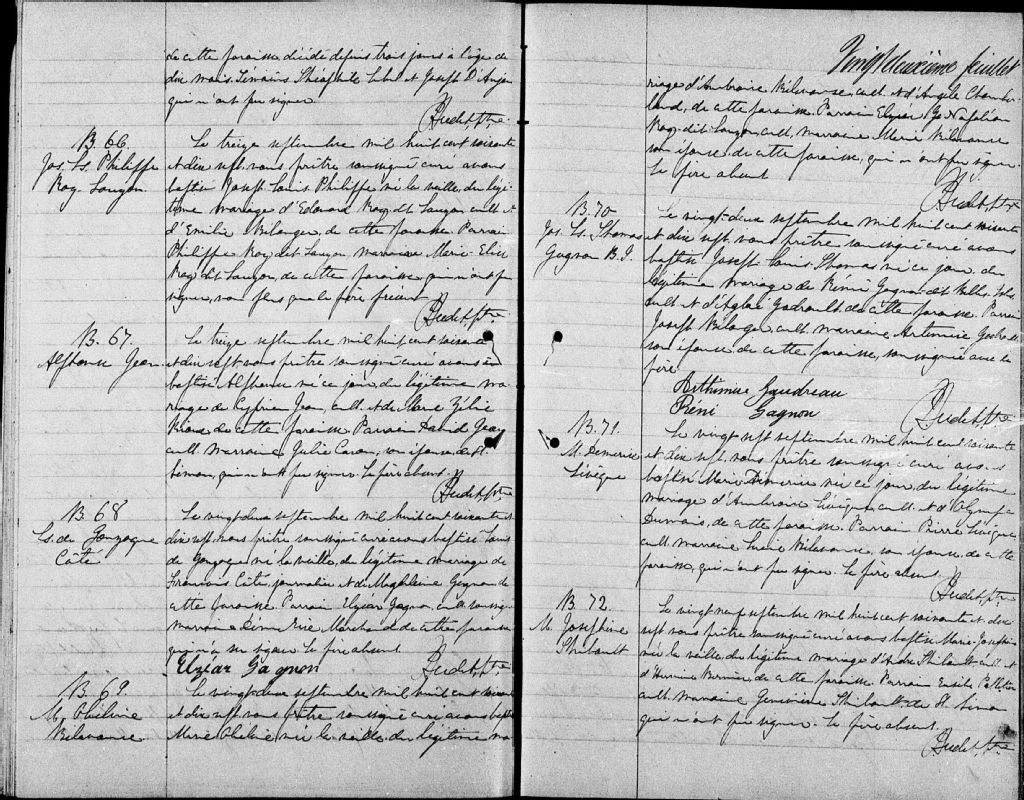 de cette paroisse décédé depuis trois jours à l'âge de
dix mois. Témoins Théophile et Joseph D'Anjou
qui n'ont pu signer.
Audet, Ptre
B. 66.
Jos. Ls. Philippe
Roy. Lauzon.
Le treize septembre mil huit cent soixante
et dix sept, nous prêtre soussigné curé avons
baptisé Joseph Louis Philippe né la veille, du légi-
time mariage d'Edouard Roy dit Lauzon cult. et
d'Emilie Belanger de cette paroisse Parrain
Philippe Roy dit Lauzon marraine Marie Elise
Roy dit Lauzon, de cette paroisse qui n'ont pu
signer, non plus que le père présent
Audet, Ptre
B. 67.
Alphonse Jean
Le treize septembre mil huit cent soixante
et dix sept nous prêtre soussigné curé avons
baptisé Alphonse né ce jour du légitime ma-
riage de Cyprien Jean, cult. et de Marie Zélie
de cette paroisse Parrain David Jean
cult. marraine Julie Caron, son épouse de St.
Simon, qui n'ont pu signer. Le père absent.
Audet, Ptre
B. 68
Ls. de Gonzague
Côté
Le vingt-deux septembre mil huit cent soixante et
dix sept, nous prêtre soussigné curé avons baptisé Louis
de Gonzague né la veille, du légitime mariage de
François Côté, journalier et de Magdeleine Gagnon de
cette paroisse. Parrain Elzéar Gagnon, cult. soussigné
marraine Marchand de cette paroisse
qui n'a su signer. Le père absent
Elzéar Gagnon
Audet, Ptre
B. 69.
M. Phebée
Le vingt-deux septembre mil huit cent soixante
et dix sept, nous prêtre soussigné curé avons baptisé
Marie née la veille, du légitime ma-
Vingt deuxième feuillet
riage d'Ambroise cult. et d'Angèle Chamber-
land, de cette paroisse. Parrain Elzéar Napoléon
Roy dit Lauzon, cult., marraine Marie
son épouse, de cette paroisse, qui n'ont pu signer.
Le père absent
Audet, Ptre
B. 70
Jos. Ls. Thomas
Gagnon B.
Le vingt-deux septembre mil huit cent soixante
et dix sept, nous prêtre soussigné curé avons
baptisé Joseph Louis Thomas né ce jour, du
légitime mariage de Rémi Gagnon dit
cult. et d'Aglaé de cette paroisse. Parrain
Joseph Bélanger, cult. marraine
son épouse de cette paroisse, soussignée avec le
père.
Arthimise Gaudreau
Rémi Gagnon
Audet, Ptre
B. 71.
M. Demerise
Lévêque
Le vingt-sept septembre mil huit cent soixante
et dix sept, nous prêtre soussigné curé avons
baptisé Marie Demerise née ce jour, du légitime
mariage d'Ambroise Lévêque cult. et d'Olympe
de cette paroisse. Parrain Pierre Lévêque
cult. marraine son épouse, de cette
paroisse, qui n'ont pu signer. Le père absent.
Audet, Ptre
B. 72.
M. Josephine
Thibault
Le vingt-neuf septembre mil huit cent soixante et dix
sept nous prêtre soussigné curé avons baptisé Marie Josephine
née la veille du légitime mariage d'André Thibault cult. et
d'Hermine de cette paroisse Parrain Emile Pelletier
cult. marraine Geneviève Thibault de St. Simon
qui n'ont pu signer. Le père absent.
Audet, Ptre